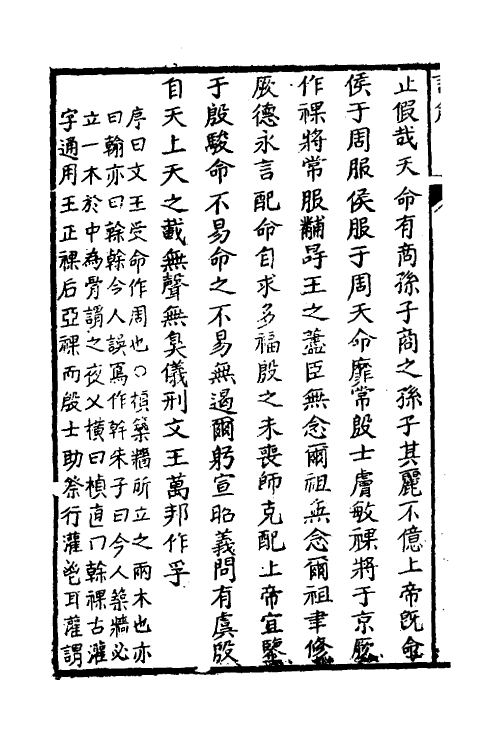 止假哉天命有商孫子商之孫子其麗不億上帝既命
侯于周服侯服于周天命靡常殷士膚敏祼將于京厥
作祼將常服黼冔王之藎臣無念爾祖無念爾祖聿修
厥德永言配命自求多福殷之未喪師克配上帝宜鑒
于殷駿命不易命之不易無遏爾躬宣昭義問有虞殷
自天上天之載無聲無臭儀刑文王萬邦作孚
序曰文王受命作周也○楨築牆所立之兩木也亦
曰翰亦曰榦榦今人誤寫作幹朱子曰今人築牆必
立一木於中為骨謂之夜乂橫曰楨直曰榦祼古灌
字通用王正祼后亞祼而殷士助祭行灌鬯耳灌謂